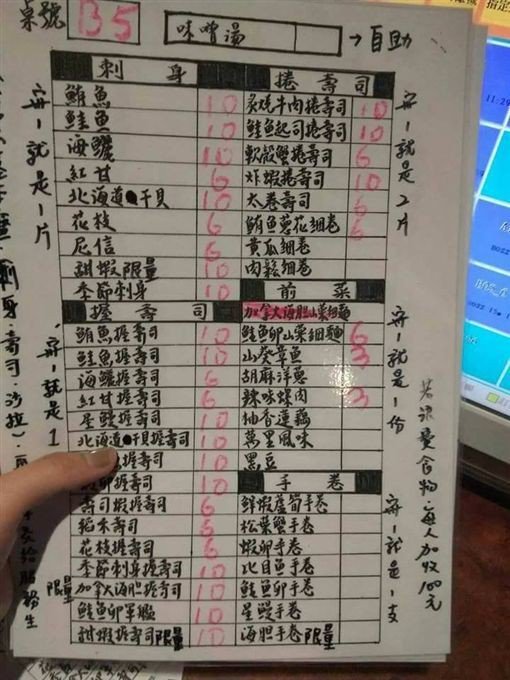 桌號 B5 味噌湯 →自助
刺身
鮪魚 10
鮭魚 10
海鱺 10
紅甘 6
北海道干貝 10
花枝 6
尼信 6
甜蝦限量 10
季節刺身 10
寫1就是1片
握壽司
鮪魚握壽司 10
鮭魚握壽司 10
海鱺握壽司 6
紅甘握壽司 6
星鰻握壽司 10
北海道干貝握壽司 10
握壽司 10
卵握壽司 10
壽司蝦握壽司 6
稻禾壽司 5
花枝握壽司 6
季節刺身握壽司 10
限量 加拿大海胆握壽司 10
鮭魚卵軍艦 10
甜蝦握壽司限量 10
寫1就是1
捲壽司
炙燒牛肉捲壽司 10
鮭魚起司捲壽司 10
軟殼蟹捲壽司 6
炸蝦捲壽司 10
太卷壽司 6
鮪魚蔥花細卷 6
黃瓜細卷
肉鬆細卷
寫1就是2片
前菜
加拿大海胆山藥細麵
鮭魚卵山藥細麵 6
山葵章魚 3
胡麻洋蔥
辣味螺肉 3
柚香蓮藕
萬里風味
黑豆
寫1就是1份
手卷
鮮蝦蘆筍手卷
松葉蟹手卷
蝦卵手卷
比目魚手卷
鮭魚卵手卷
星鰻手卷
海胆手卷限量
寫1就是1支
若浪費食物，每人加收100元
刺身·壽司·沙拉)